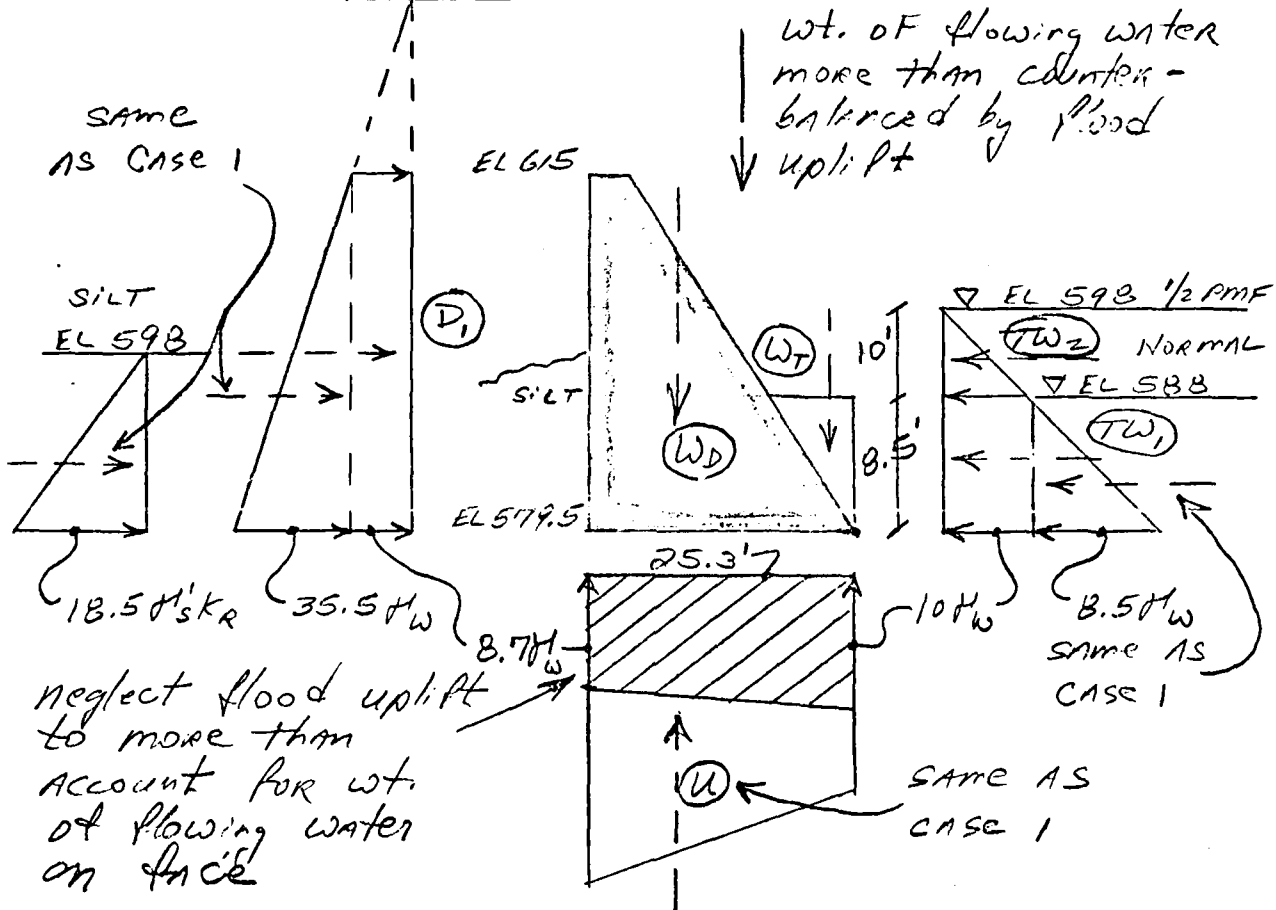 wt. of flowing water
more than counter-
balanced by flood
uplift
SAME
AS CASE 1
EL 615
SILT
EL 598
D₁
SILT
W_T
W_D
10'
8.5'
▽ EL 598 1/2 PMF
TW₂ NORMAL
▽ EL 588
TW₁
EL 579.5
25.3'
18.5 γ's K_R
35.5 γ_w
8.7 γ_w
10 γ_w
8.5 γ_w
SAME AS
CASE 1
neglect flood uplift
to more than
account for wt.
of flowing water
on face
U
SAME AS
CASE 1